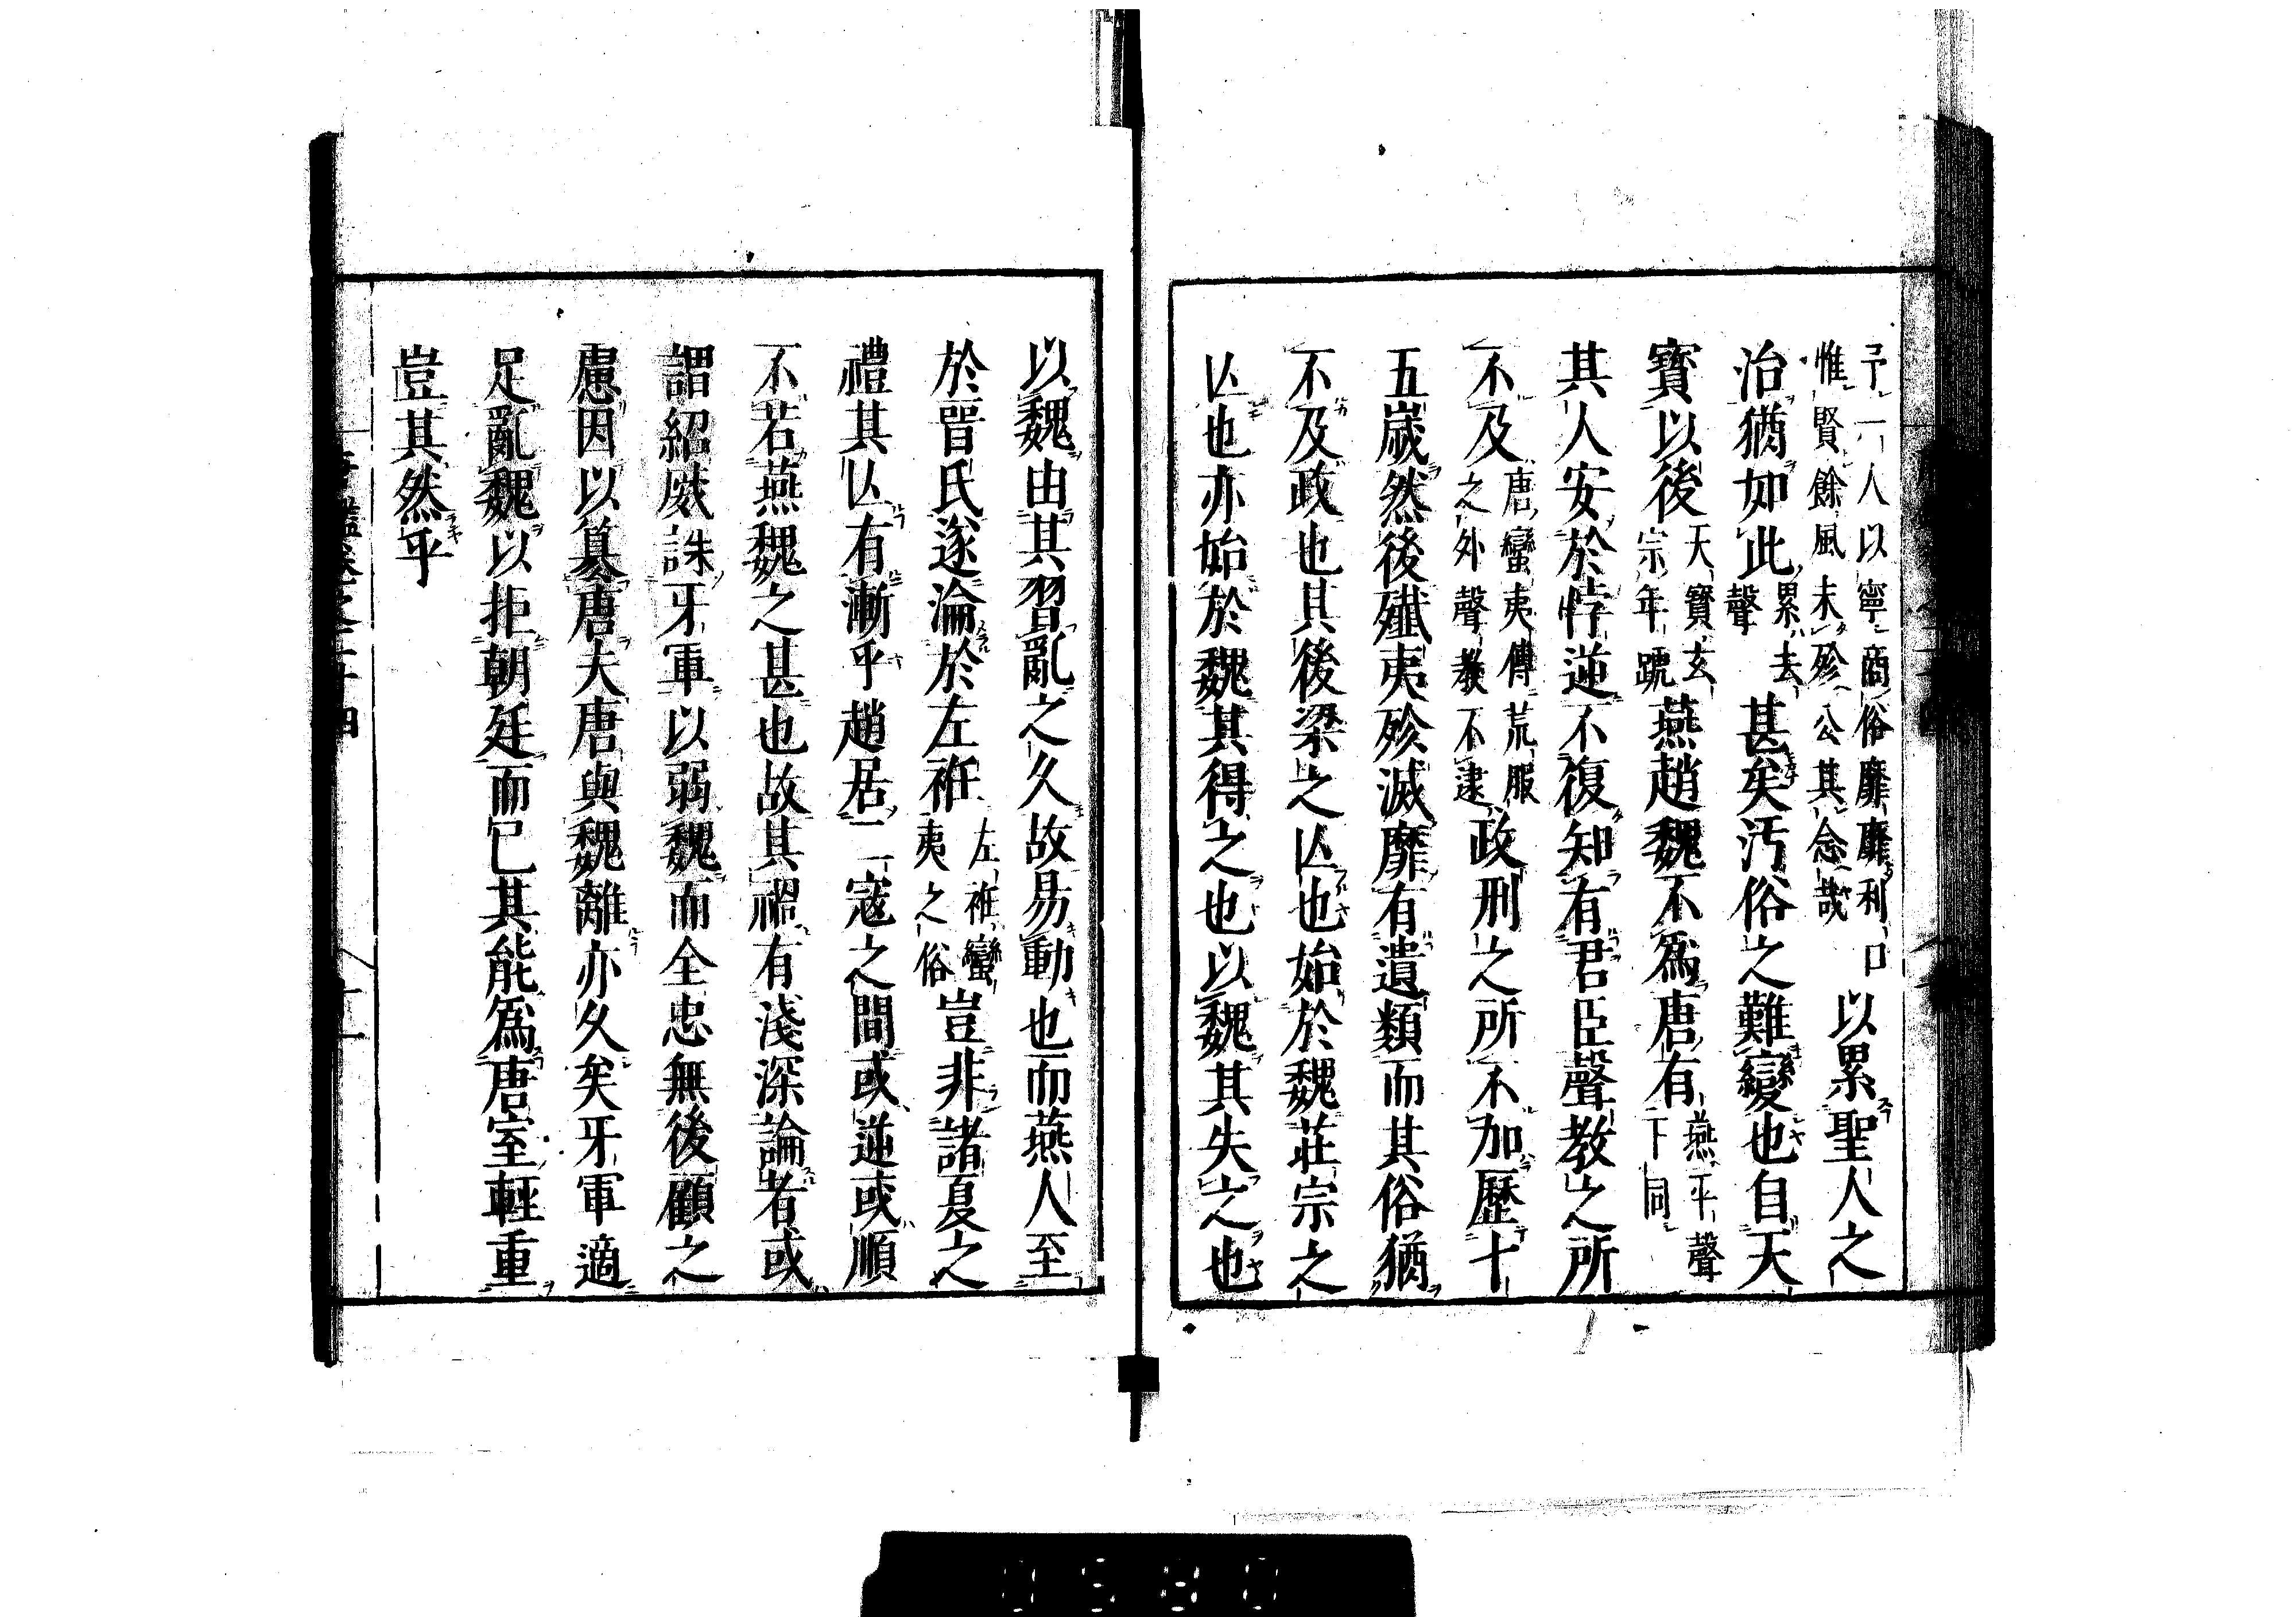 予一人以寧商俗靡靡利口
惟賢餘風未殄公其念哉
以累聖人之
治猶如此
累去
聲
甚矣汚俗之難變也自天
寶以後
天寶玄
宗年號
燕趙魏不爲唐有
燕平聲
下同
其人安於悖逆不復知有君臣聲教之所
不及
唐蠻夷傳荒服
之外聲教不逮
政刑之所不加歷十
五歲然後殲夷殄滅靡有遺類而其俗猶
不及政也其後梁之亾也始於魏莊宗之
亾也亦始於魏其得之也以魏其失之也
以魏由其習亂之久故易動也而燕人至
於晉氏遂淪於左袵
左袵蠻
夷之俗
豈非諸夏之
禮其亾有漸乎趙居二寇之間或逆或順
不若燕魏之甚也故其禍有淺深論者或
謂紹威誅牙軍以弱魏而全忠無後顧之
慮因以簒唐夫唐與魏離亦久矣牙軍適
足亂魏以拒朝廷而已其能爲唐室輕重
豈其然乎